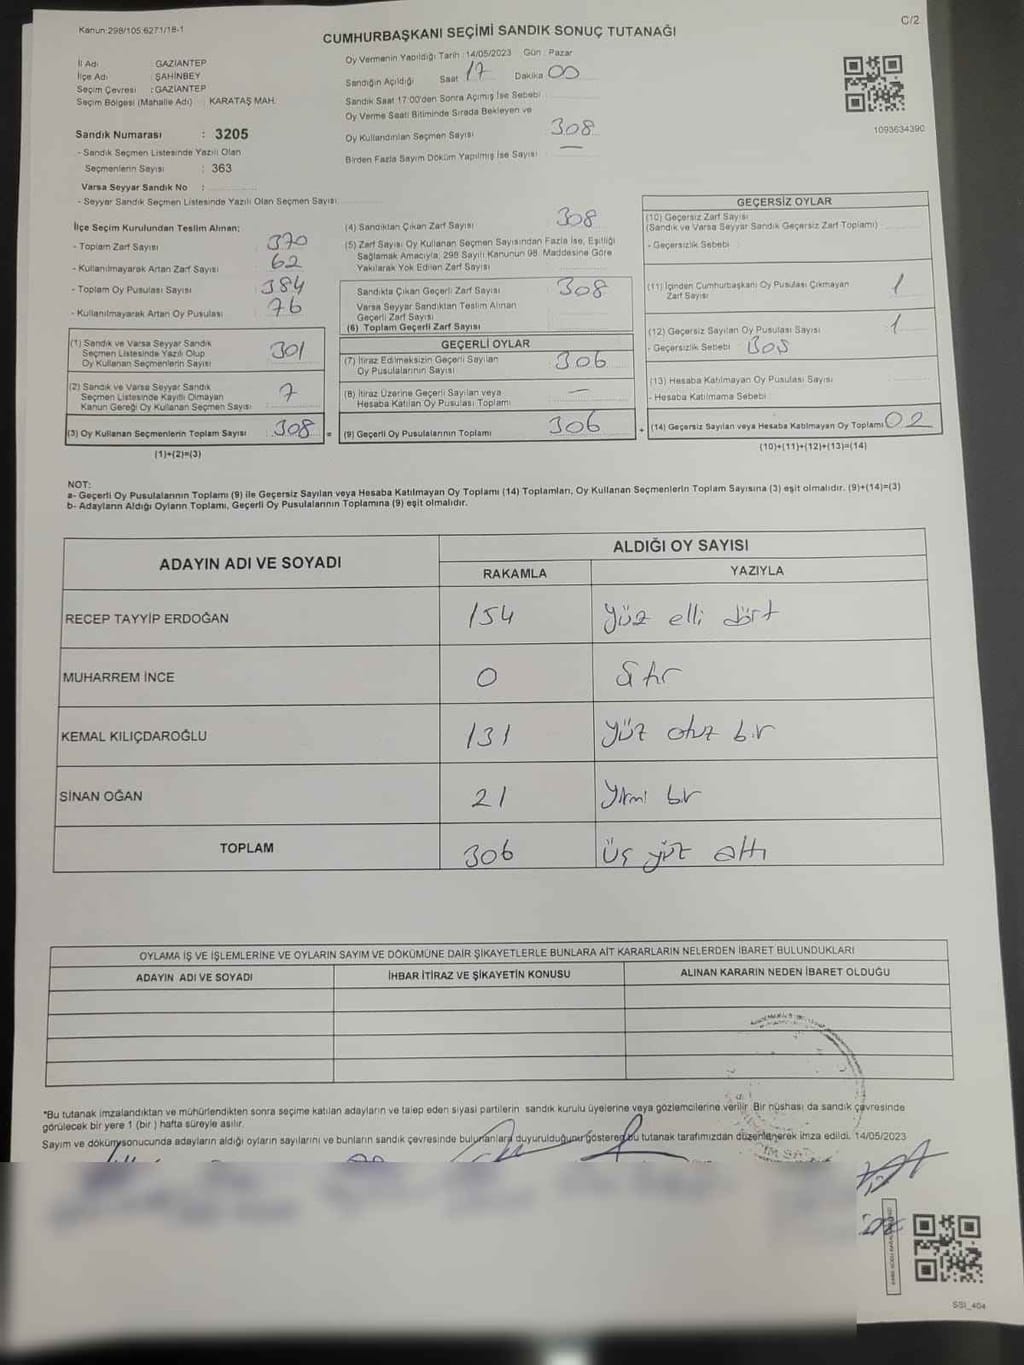 Kanun:298/105.6271/18-1
C/2
CUMHURBAŞKANI SEÇİMİ SANDIK SONUÇ TUTANAĞI
İl Adı : GAZİANTEP
İlçe Adı : ŞAHİNBEY
Seçim Çevresi : GAZİANTEP
Seçim Bölgesi (Mahalle Adı) : KARATAŞ MAH.
Sandık Numarası : 3205
- Sandık Seçmen Listesinde Yazılı Olan
Seçmenlerin Sayısı : 363
Varsa Seyyar Sandık No :
- Seyyar Sandık Seçmen Listesinde Yazılı Olan Seçmen Sayısı:
Oy Vermenin Yapıldığı Tarih : 14/05/2023 Gün : Pazar
Sandığın Açıldığı Saat 17 Dakika 00
Sandık Saat 17:00'den Sonra Açılmış İse Sebebi
Oy Verme Saati Bitiminde Sırada Bekleyen ve
Oy Kullandırılan Seçmen Sayısı 308
Birden Fazla Sayım Döküm Yapılmış İse Sayısı —
1093634390
İlçe Seçim Kurulundan Teslim Alınan;
- Toplam Zarf Sayısı 370
- Kullanılmayarak Artan Zarf Sayısı 62
- Toplam Oy Pusulası Sayısı 384
- Kullanılmayarak Artan Oy Pusulası 76
(1) Sandık ve Varsa Seyyar Sandık
Seçmen Listesinde Yazılı Olup
Oy Kullanan Seçmenlerin Sayısı 301
(2) Sandık ve Varsa Seyyar Sandık
Seçmen Listesinde Kayıtlı Olmayan
Kanun Gereği Oy Kullanan Seçmen Sayısı 7
(3) Oy Kullanan Seçmenlerin Toplam Sayısı 308 =
(1)+(2)=(3)
(4) Sandıktan Çıkan Zarf Sayısı 308
(5) Zarf Sayısı Oy Kullanan Seçmen Sayısından Fazla İse, Eşitliği
Sağlamak Amacıyla; 298 Sayılı Kanunun 98. Maddesine Göre
Yakılarak Yok Edilen Zarf Sayısı
Sandıkta Çıkan Geçerli Zarf Sayısı 308
Varsa Seyyar Sandıktan Teslim Alınan
Geçerli Zarf Sayısı
(6) Toplam Geçerli Zarf Sayısı
GEÇERLİ OYLAR
(7) İtiraz Edilmeksizin Geçerli Sayılan
Oy Pusulalarının Sayısı 306
(8) İtiraz Üzerine Geçerli Sayılan veya
Hesaba Katılan Oy Pusulası Toplamı —
(9) Geçerli Oy Pusulalarının Toplamı 306 +
GEÇERSİZ OYLAR
(10) Geçersiz Zarf Sayısı
(Sandık ve Varsa Seyyar Sandık Geçersiz Zarf Toplamı)
- Geçersizlik Sebebi
(11) İçinden Cumhurbaşkanı Oy Pusulası Çıkmayan
Zarf Sayısı 1
(12) Geçersiz Sayılan Oy Pusulası Sayısı 1
- Geçersizlik Sebebi
(13) Hesaba Katılmayan Oy Pusulası Sayısı
- Hesaba Katılmama Sebebi
(14) Geçersiz Sayılan veya Hesaba Katılmayan Oy Toplamı 02
(10)+(11)+(12)+(13)=(14)
NOT:
a- Geçerli Oy Pusulalarının Toplamı (9) ile Geçersiz Sayılan veya Hesaba Katılmayan Oy Toplamı (14) Toplamları, Oy Kullanan Seçmenlerin Toplam Sayısına (3) eşit olmalıdır. (9)+(14)=(3)
b- Adayların Aldığı Oyların Toplamı, Geçerli Oy Pusulalarının Toplamına (9) eşit olmalıdır.
ADAYIN ADI VE SOYADI
ALDIĞI OY SAYISI
RAKAMLA YAZIYLA
RECEP TAYYİP ERDOĞAN 154 Yüz elli dört
MUHARREM İNCE 0 Sıfır
KEMAL KILIÇDAROĞLU 131 Yüz otuz bir
SİNAN OĞAN 21 Yirmi bir
TOPLAM 306 Üç yüz altı
OYLAMA İŞ VE İŞLEMLERİNE VE OYLARIN SAYIM VE DÖKÜMÜNE DAİR ŞİKAYETLERLE BUNLARA AİT KARARLARIN NELERDEN İBARET BULUNDUKLARI
ADAYIN ADI VE SOYADI İHBAR İTİRAZ VE ŞİKAYETİN KONUSU ALINAN KARARIN NEDEN İBARET OLDUĞU
*Bu tutanak imzalandıktan ve mühürlendikten sonra seçime katılan adayların ve talep eden siyasi partilerin sandık kurulu üyelerine veya gözlemcilerine verilir. Bir nüshası da sandık çevresinde
görülecek bir yere 1 (bir) hafta süreyle asılır.
Sayım ve dökümü sonucunda adayların aldığı oyların sayılarını ve bunların sandık çevresinde bulunanlara duyurulduğunu gösteren bu tutanak tarafımızdan düzenlenerek imza edildi. 14/05/2023
SSI_404